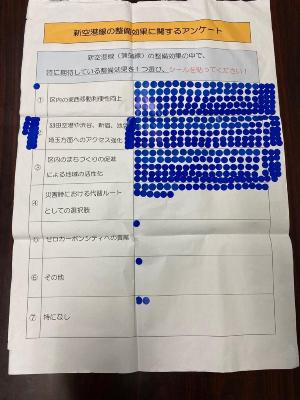 新空港線の整備効果に関するアンケート
新空港線（蒲蒲線）の整備効果の中で、
特に期待している整備効果を1つ選び、シールを貼ってください！
① 区内の東西移動利便性向上
羽田空港や渋谷、新宿、池袋
埼玉方面へのアクセス強化
③ 区内のまちづくりの促進
による地域の活性化
④ 災害時における代替ルート
としての選択肢
⑤ ゼロカーボンシティへの貢献
⑥ その他
⑦ 特になし